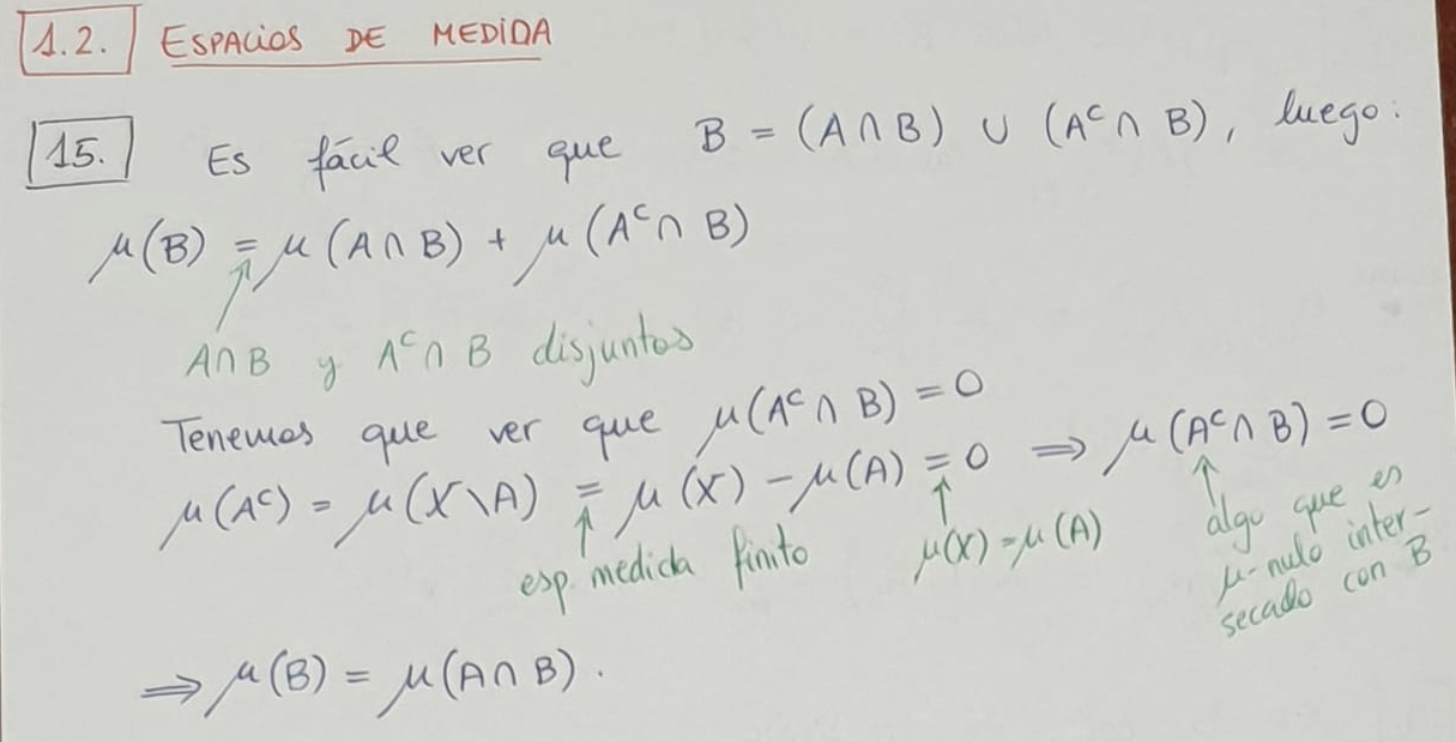 1.2. ESPACIOS DE MEDIDA
15. Es fácil ver que B = (A ∩ B) ∪ (Aᶜ ∩ B), luego:
μ(B) = μ(A ∩ B) + μ(Aᶜ ∩ B)
A∩B y Aᶜ∩B disjuntos
Tenemos que ver que μ(Aᶜ ∩ B) = 0
μ(Aᶜ) = μ(X\A) = μ(X) - μ(A) = 0 ⟹ μ(Aᶜ ∩ B) = 0
esp. medida finito
μ(X) = μ(A)
algo que es
μ-nulo inter-
secado con B
⟹ μ(B) = μ(A ∩ B).